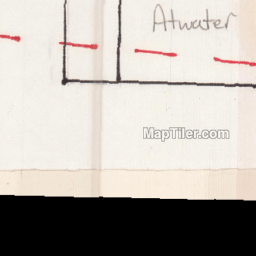 Atwater
MapTiler.com